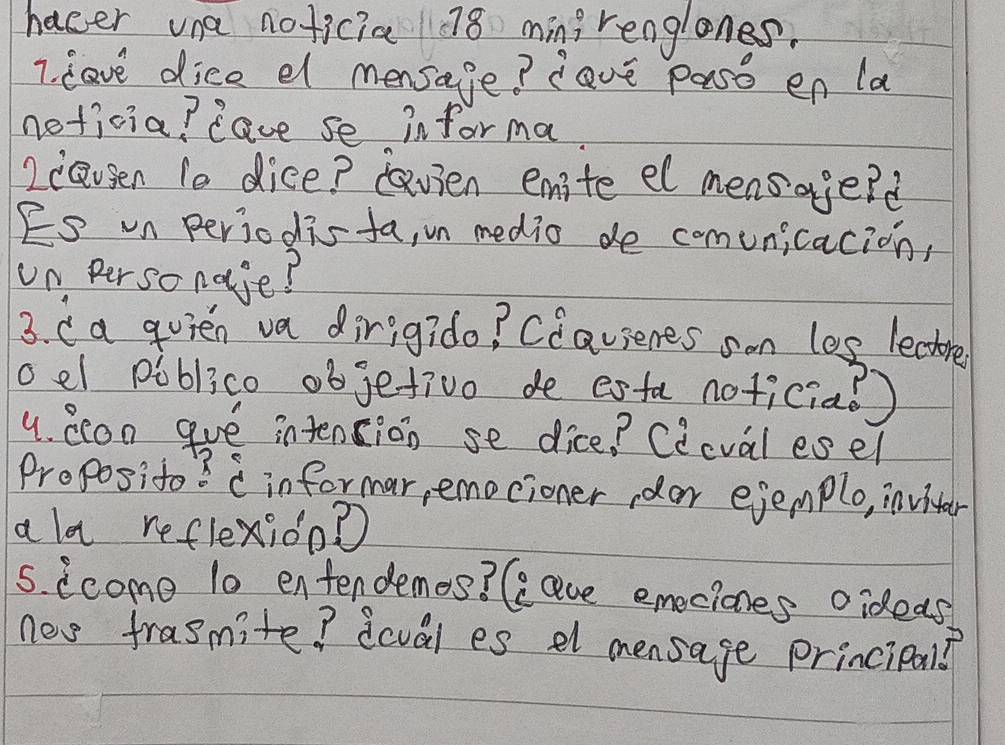 hacer una noticia 18 mini renglones.
1. ¿Qué dice el mensaje? ¿Qué pasó en la
noticia? ¿Que se informa.
2 ¿Quien lo dice? ¿Quien emite el mensaje? ¿
Es un periodista, un medio de comunicación,
un personaje?
3. ¿a quién va dirigido? (¿Quienes son los lectores
o el público objetivo de esta noticia?)
4. ¿con qué intención se dice? (¿cuál es el
Proposito? ¿ informar, emocioner, dar ejemplo, invitar
a la reflexión?)
5. ¿como lo entendemos? (¿Que emociones o ideas
nos trasmite? ¿cuál es el mensage principal?